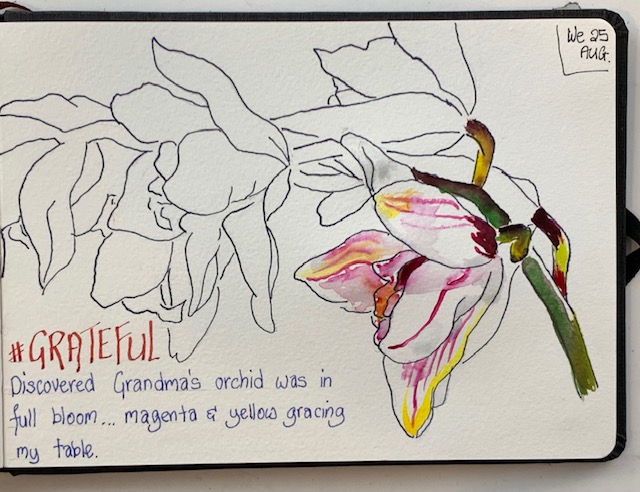 We 25
AUG.
#GRATEFUL
Discovered Grandma's orchid was in
full bloom... magenta & yellow gracing
my table.